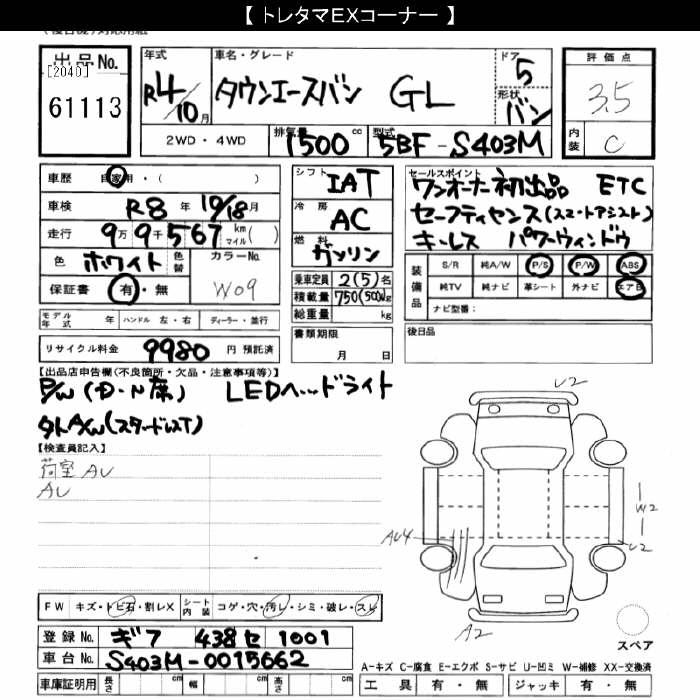 【 トレタマEXコーナー 】
出品No.
[2040]
61113
年式
R4/10月
車名・グレード
タウンエースバン GL
ドア 5
形状 バン
評価点
3.5
内装 C
2WD・4WD
排気量 1500 cc
型式 5BF-S403M
車歴 自家用・( )
車検 R8年 10/18月
走行 9万9千567 km マイル( )
色 ホワイト 色替
カラーNo. W09
保証書 有・無
シフト IAT
冷房 AC
燃料 ガソリン
乗車定員 2(5)名
積載量 750(500)kg
総重量 kg
セールスポイント
ワンオーナー 初出品 ETC
セーフティセンス(スマートアシスト)
キーレス パワーウィンドウ
装備品 S/R 純A/W P/S P/W ABS
純TV 純ナビ 革シート 外ナビ エアB
ナビ型番:
モデル年式 年 ハンドル 左・右 ディーラー・並行
リサイクル料金 9980 円 預託済
書類期限
月 日
後日品
【出品店申告欄(不良箇所・欠品・注意事項等)】
P/W(D・N席) LEDヘッドライト
外A/W(スタッドレスT)
【検査員記入】
荷室 AU
AU
U2
AU4
W2
U2
A2
スペア
FW キズ・トビ石・割レX シート内装 コゲ・穴・汚レ・シミ・破レ・スレ
登録No. ギフ 438 セ 1001
車台No. S403M-0015662
A-キズ C-腐食 E-エクボ S-サビ U-凹ミ W-補修 XX-交換済
車庫証明用 長さ cm 幅 cm 高さ cm
工具 有・無 ジャッキ 有・無